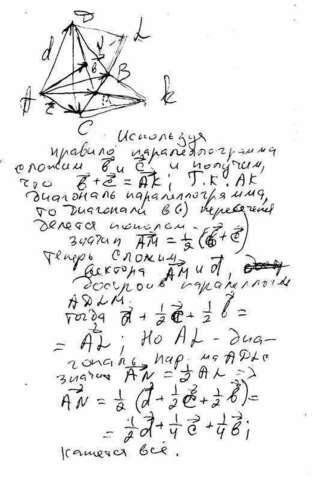 D
d
L
N
A
b
B
c
M
K
C
Используя
правило параллелограмма
сложим b⃗ и c⃗ и получим,
что b⃗ + c⃗ = AK⃗; Т.к. AK
диагональ параллелограмма,
то диагонали в () пересечения
делятся пополам.
значит AM⃗ = 1/2 (b⃗ + c⃗)
теперь сложим
вектора AM⃗ и d⃗,
достроив параллелогр
ADLM.
тогда d⃗ + 1/2 c⃗ + 1/2 b⃗ =
= AL⃗; Но AL - диа-
гональ пар. ма ADLC
значит AN⃗ = 1/2 AL =>
AN⃗ = 1/2 (d⃗ + 1/2 c⃗ + 1/2 b⃗) =
= 1/2 d⃗ + 1/4 c⃗ + 1/4 b⃗;
кажется всё.